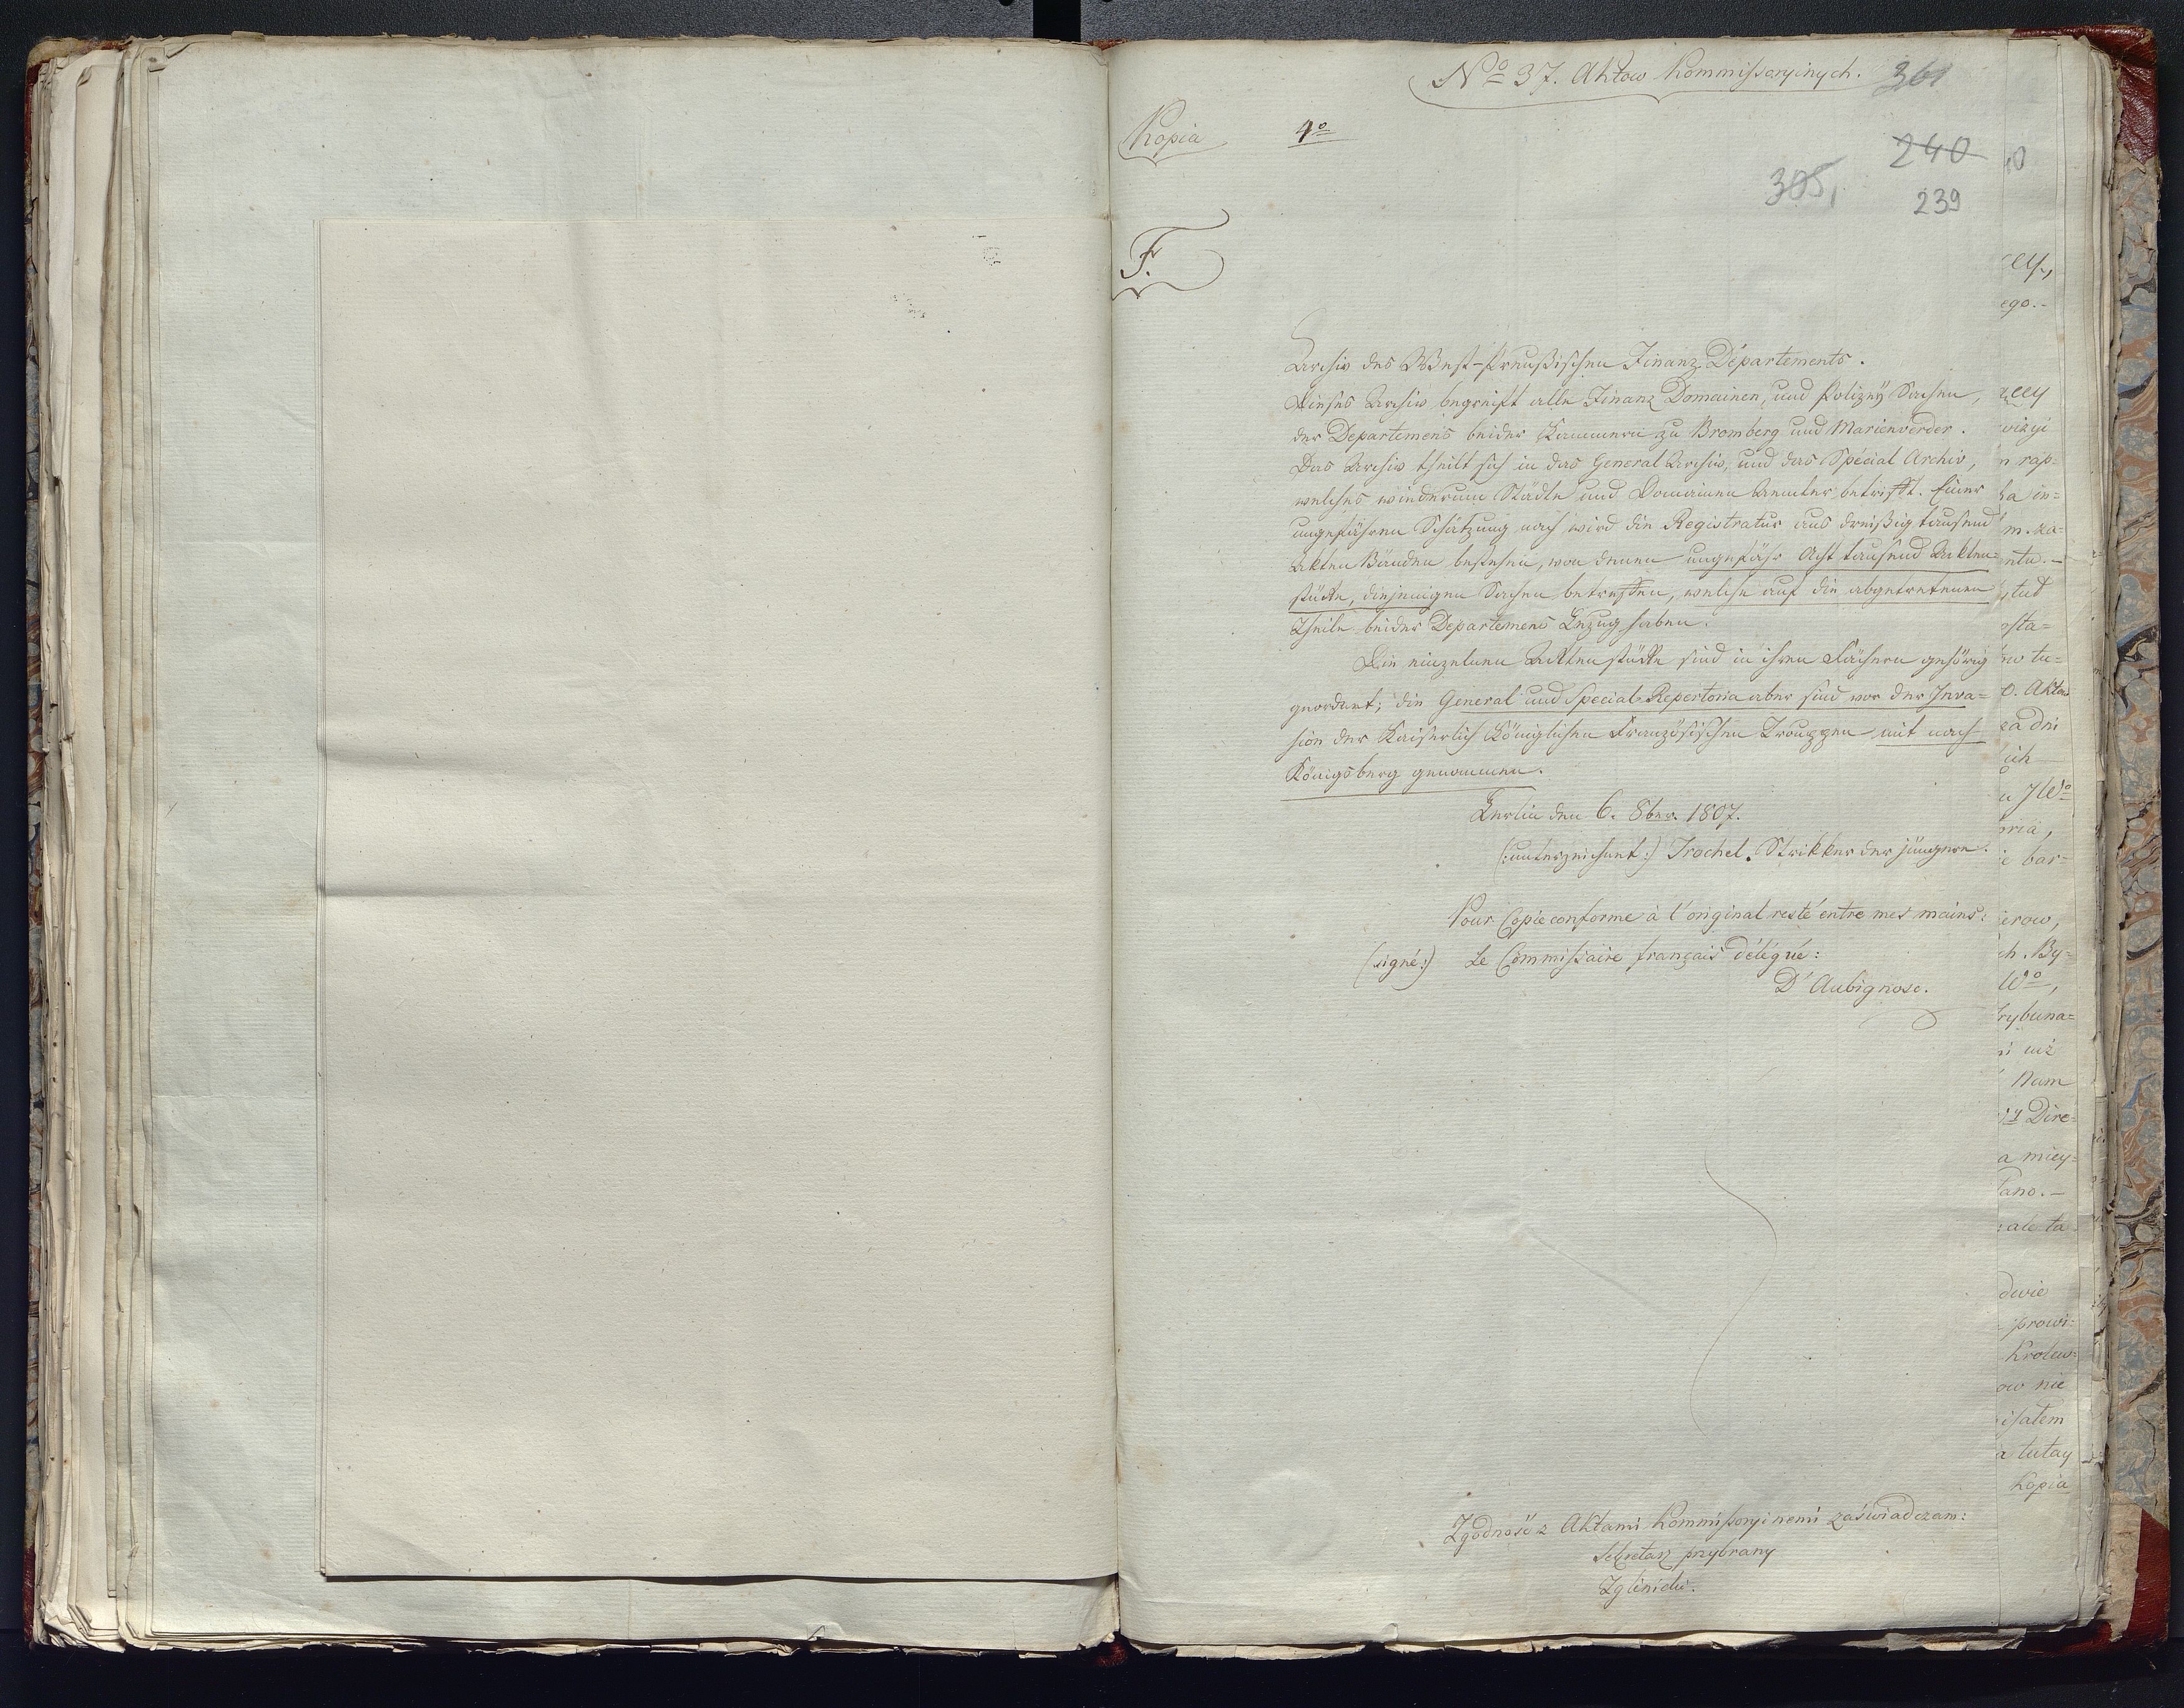 No 37. Aktow Kommissoryinych. 361
Kopia 4o
240
305, 239
F.
Archiv des West-Preußischen Finanz Départements.
Dieses Archiv begreift alle Finanz Domainen, und Polizey Sachen,
der Departemens beider Kammern zu Bromberg und Marienverder.
Das Archiv theilt sich in das General Archiv, und das Spécial Archiv,
welches wiederum Städte und Domainen Aemter betrifft. Einer
ungefähren Schätzung nach wird die Registratur aus dreißig tausend
Akten Bänden bestehen, von denen ungefähr Acht tausend Akten-
stücke, diejenigen Sachen betreffen, welche auf die abgetretenen
Theile beider Departemens Bezug haben.
Die einzelnen Aktenstücke sind in ihren Fächern gehörig
geordnet; die General und Special-Repertoria aber sind vor der Inva=
sion der Kaiserlich Königlichen Französischen Trouppen mit nach
Königsberg genommen.
Berlin den 6. 8ber. 1807.
(:unterzeichnet:) Trochel. Strikker der jüngere.
Pour Copie conforme à l'original resté entre mes mains:
(signé:) Le Commissaire français délégué:
D'Aubignosc.
Zgodność z Aktami Kommissoryinemi zaświadczam:
Sekretarz przybrany
Zglinicki.
ego.-
n rap=
ha in=
m. za=
osta=
O. Aktow
oria,
e bar=
ch. By=
Trybuna=
Nam
Dire=
a miey=
ale ta
dwie
prowi=
Krolew=
ow nie
a tutay
Kopia